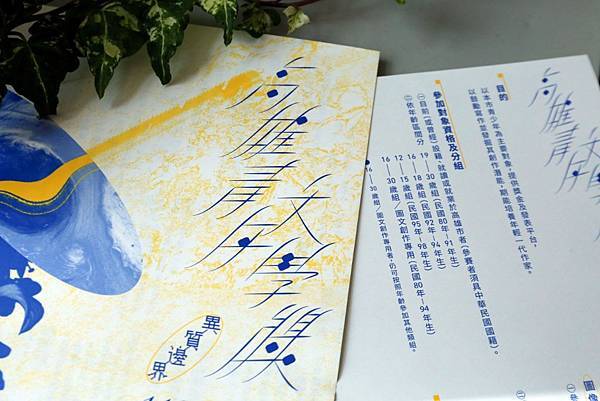 高雄青年
文學獎
異質邊界
高雄青年
文
目的
以本市青少年為主要對象，提供獎金及發表平台，
以鼓勵寫作並發掘其創作潛能，期能培養年輕一代作家。
參加對象資格及分組
㈠目前(或曾經)設籍、就讀或就業於高雄市者(參賽者須具中華民國國籍)。
㈡依年齡區間分
19—30歲組(民國80年-91年生)
16—18歲組(民國92年-94年生)
12—15歲組(民國95年-98年生)
16—30歲組/圖文創作專用(民國80年-94年生)
16—30歲組/圖文創作專用者，仍可按照年齡參加其他類組。
圖像